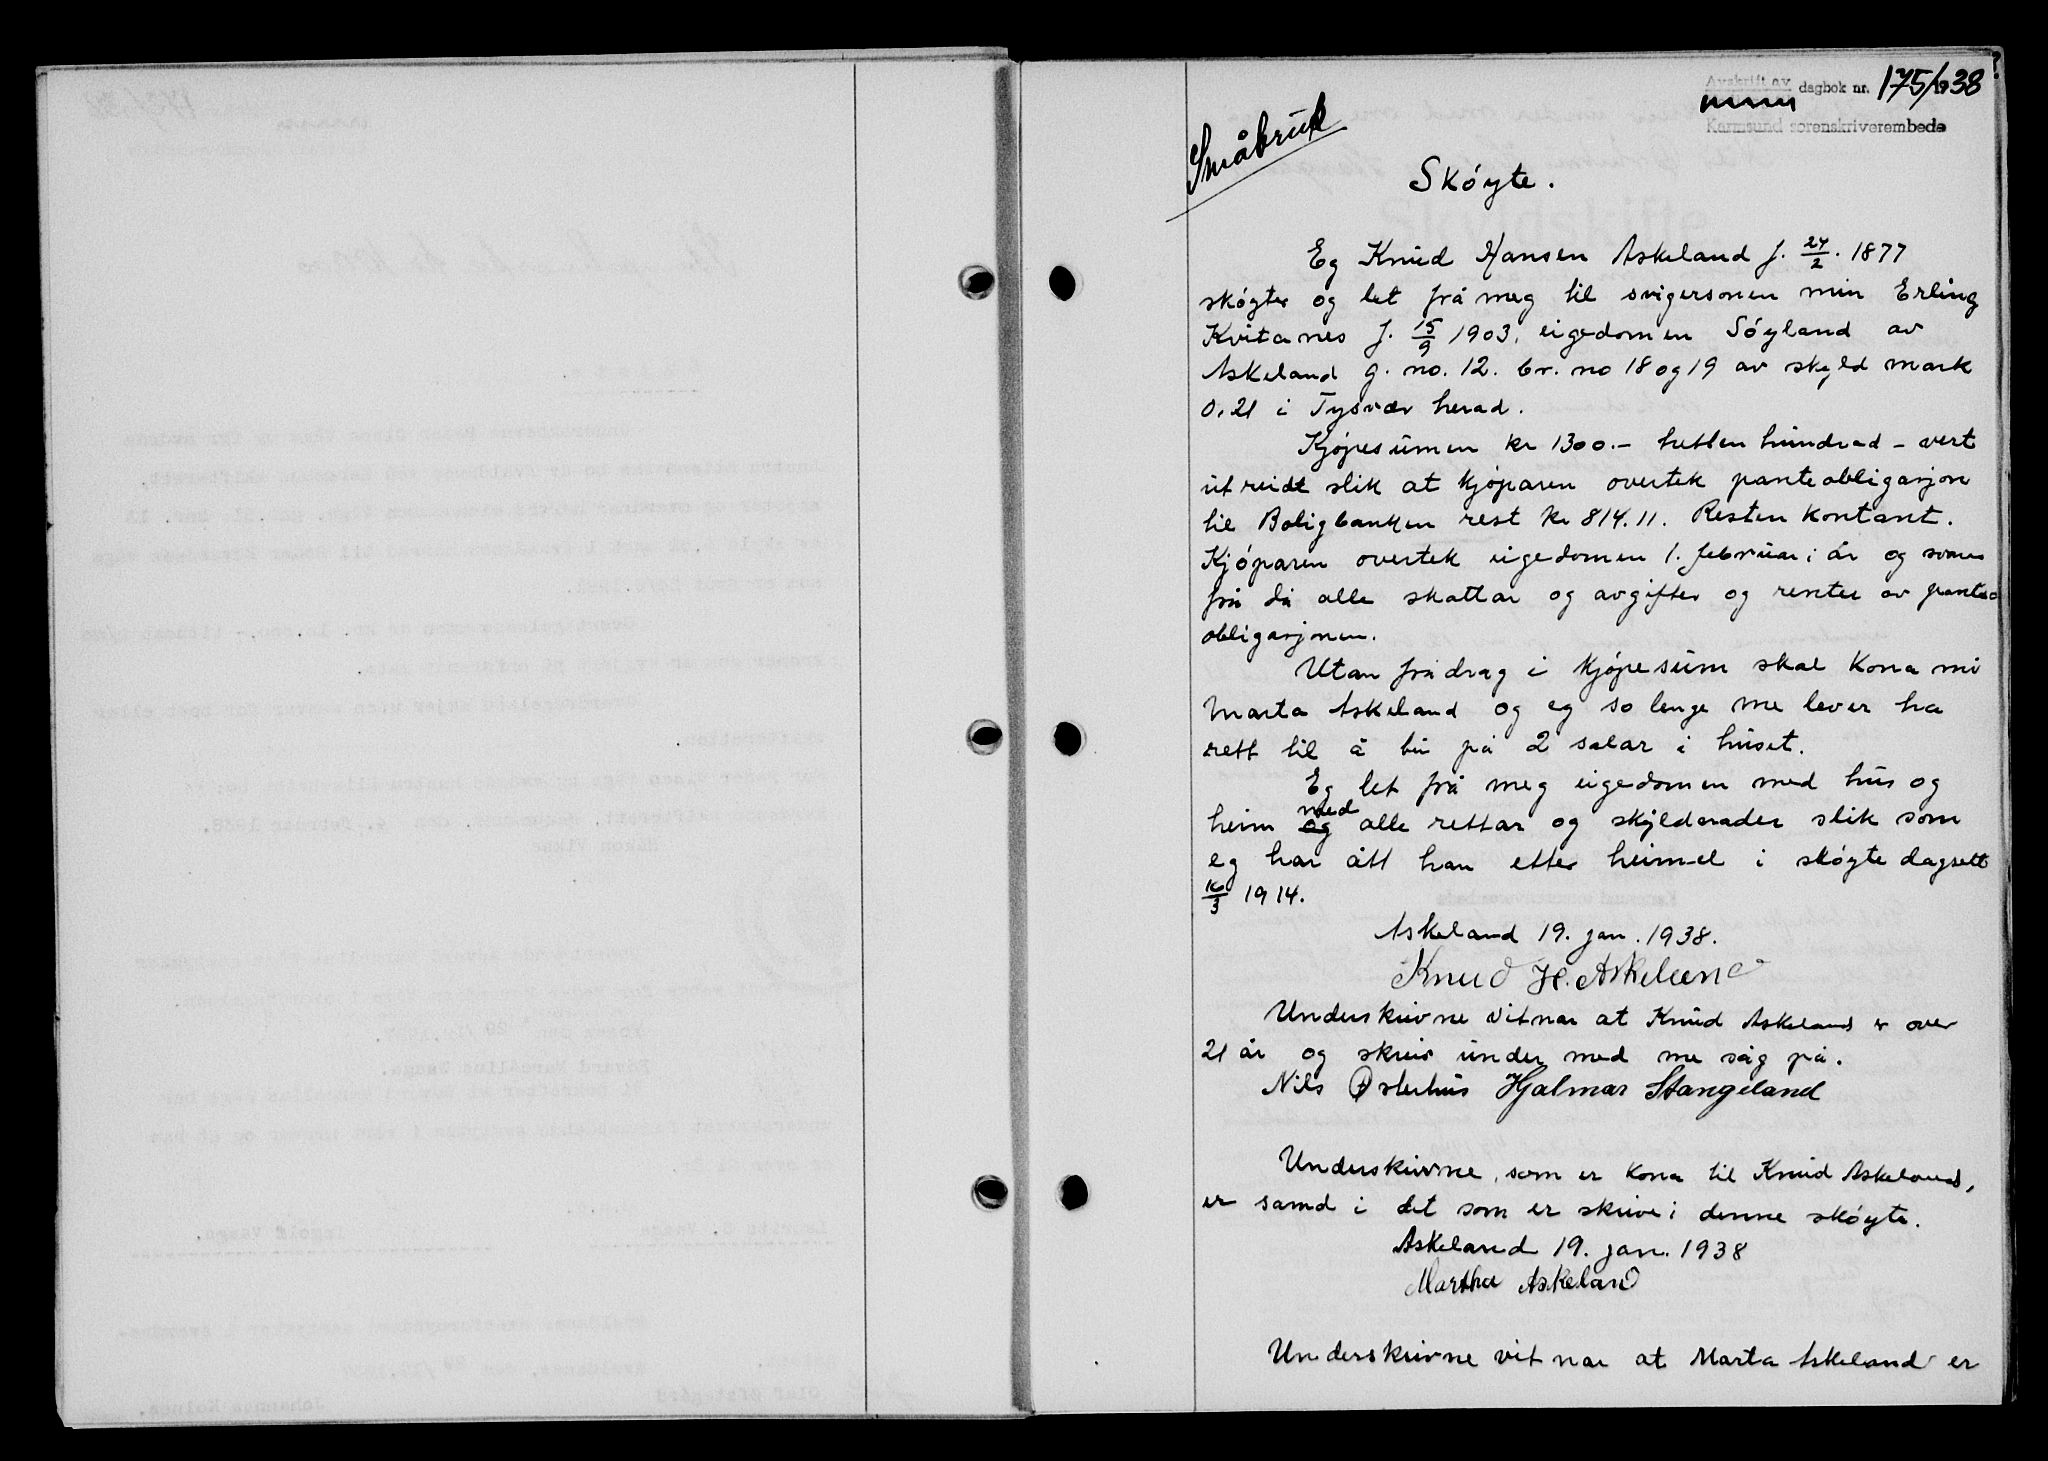 Avskrift av dagbok nr. 175/1938
Karmsund sorenskriverembede
Småbruk
Skóyte.
Eg Knud Hansen Askeland f. 24/2. 1877
skóyter og let frå meg til svigersonen min Erling
Kvitanes f. 15/9 1903, eigedomen Sóyland av
Askeland g. no. 12. br. no 18 og 19 av skyld mark
0,21 i Tysvær herad.
Kjópesumen kr 1300.- tretten hundrad - vert
utreidt slik at kjóparen overtek panteobligasjon
til Boligbanken rest kr 814.11. Resten kontant.
Kjóparen overtek eigedomen 1. februar i år og svarer
frå då alle skattar og avgifter og renter av pante-
obligasjonen.
Utan frådrag i kjópesum skal kona mi
Marta Askeland og eg so lenge me lever ha
rett til å bu på 2 salar i huset.
Eg let frå meg eigedomen med hus og
heim og med alle rettar og skyldnader slik som
eg har ått han etter heimel i skóyte dagsett
16/3 1914.
Askeland 19. jan. 1938.
Knud H. Askeland
Underskrivne vitnar at Knud Askeland er over
21 år og skreiv under med me såg på.
Nils Østerhus Hjalmar Stangeland
Underskrivne, som er kona til Knud Askeland,
er samd i det som er skrive i denne skóyte.
Askeland 19. jan. 1938
Martha Askeland
Underskrivne vitnar at Marta Askeland er